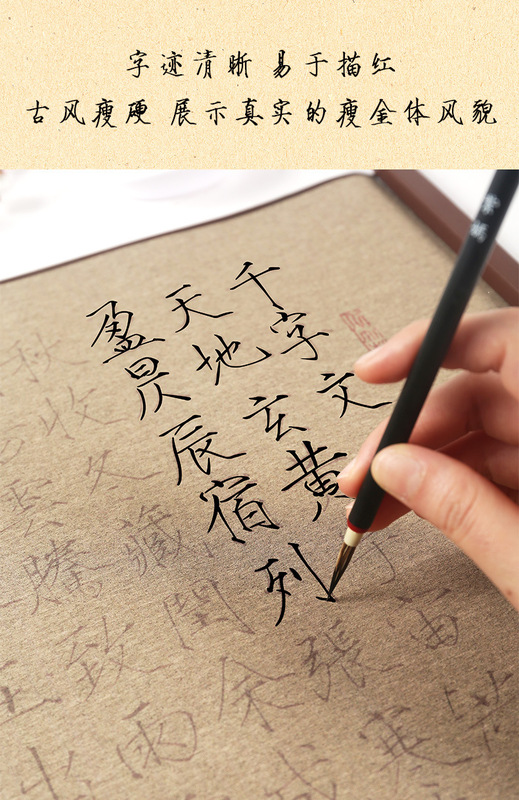 字迹清晰 易于描红
古风瘦硬 展示真实的瘦金体风貌
千字文
天地玄黄宇宙
盈昃辰宿列張寒
秋收冬藏閏余成
雲騰致雨